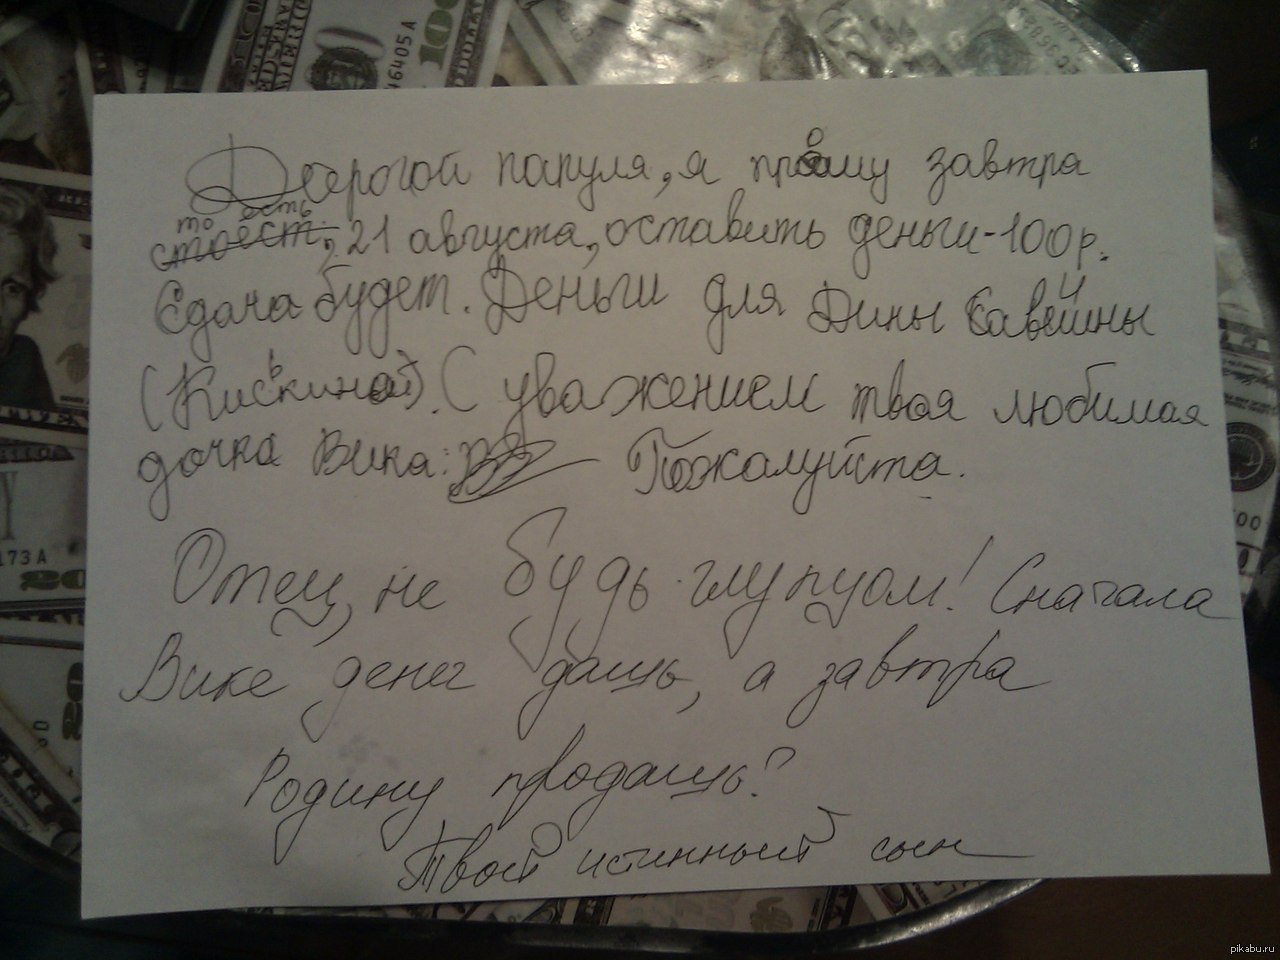 Дорогой папуля, я прошу завтра
то есть
стоест, 21 августа, оставить деньги-100р.
Сдача будет. Деньги для Дины
(Киськиной). С уважением твоя любимая
дочка Вика: Пожалуйста.
Отец, не будь глупцом! Сначала
Вике денег дашь, а завтра
Родину продашь?
Твой истинный сын
100
16405 A
173 A
20
pikabu.ru